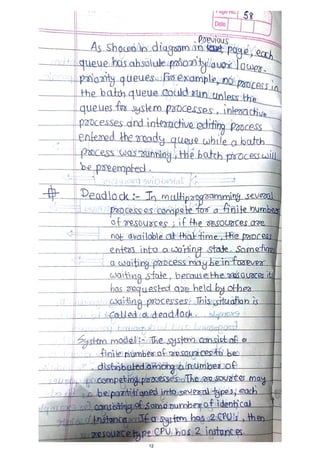 Page No. 58
Date
previous
As Shown in diagram in page, each
queue has absolute priority over lower-
priority queues. For example, no process in
the batch queue could run unless the
queues for system processes, interactive
processes and interactive editing process
entered the ready queue while a batch
process was running, the batch process will
be preempted.
Deadlock :- In multiprogramming several
processes compete for a finite number
of resources ; if the resources are
not available at that time, the process
enters into a waiting state. Sometimes
a waiting process may be in forever
waiting state, because the resources it
has requested are held by other
waiting processes. This situation is
called a deadlock.
System model :- The system consist of a
finite number of resources to be
distributed among a number of
competing processes. The resources may
be partitioned into several types, each
consisting of some number of identical
instance. If a system has 2 CPU's, then
resource type CPU has 2 instances.
12